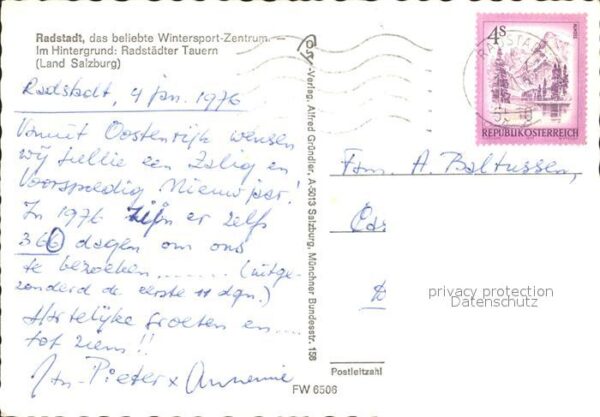 Radstadt, das beliebte Wintersport-Zentrum.
Im Hintergrund: Radstädter Tauern
(Land Salzburg)
Radstadt, 4 jan. 1976
Vanuit Oostenrijk wensen
wij jullie een Zalig en
Voorspoedig Nieuwjaar!
In 1976 zijn er zelfs
366 dagen om ons
te bezoeken......... (uitge-
zonderd de eerste 11 dgn.)
Hartelijke groeten en....
tot ziens!!
Pieter x Annemie
Verlag Alfred Gründler, A-5013 Salzburg, Münchner Bundesstr. 156
FW 6506
4 S
REPUBLIK ÖSTERREICH
RADSTADT
Fam. A. Baltussen,
privacy protection
Datenschutz
Postleitzahl